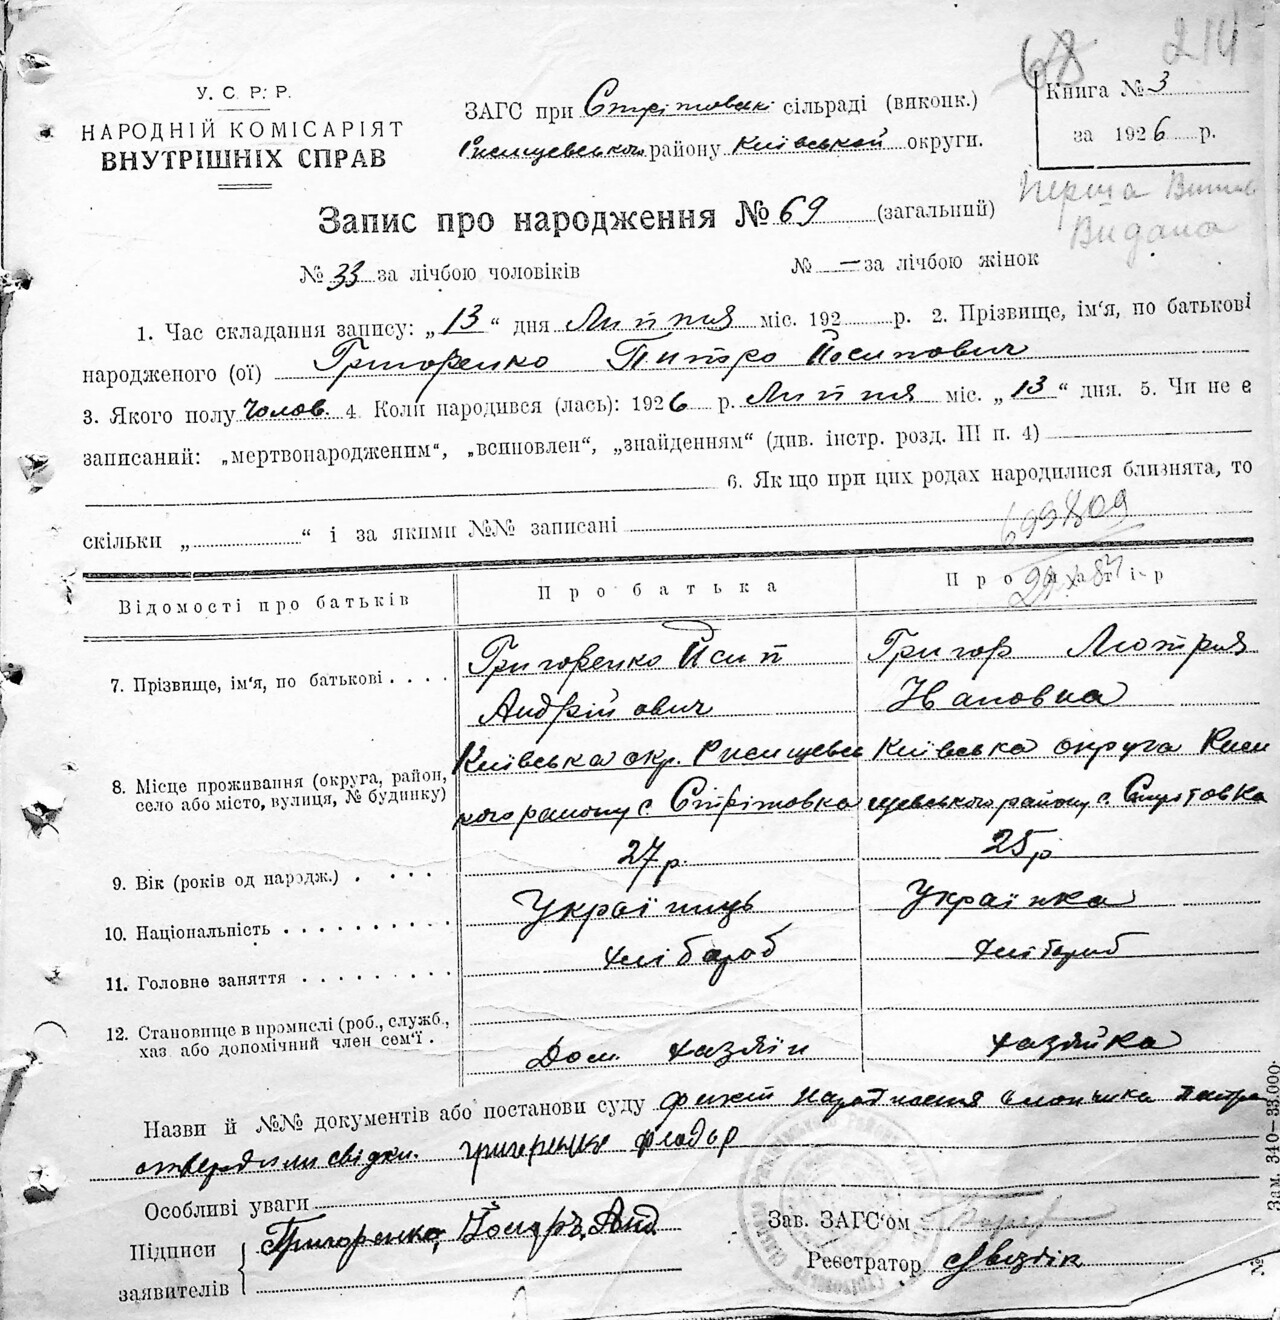 68 214
У. С. Р. Р.
НАРОДНІЙ КОМІСАРІЯТ
ВНУТРІШНІХ СПРАВ
ЗАГС при Стрітовські сільраді (виконк.)
Ржищевського району Київської округи.
Книга № 3
за 1926 р.
Перша
Видана
Запис про народження № 69 (загальний)
№ 33 за лічбою чоловіків № — за лічбою жінок
1. Час складання запису: „13“ дня Липня міс. 192 р. 2. Прізвище, ім'я, по батькові
народженого (ої) Григоренко Питро Йосипович
3. Якого полу Чолов. 4. Коли народився (лась): 1926 р. Липня міс. „13“ дня. 5. Чи не є
записаний: „мертвонародженим“, „всиновлен“, „знайденням“ (див. інстр. розд. III п. 4)
6. Як що при цих родах народилися близнята, то
скільки „ “ і за якими №№ записані
699809
Відомості про батьків Про батька Про матір
7. Прізвище, ім'я, по батькові . . . . Григоренко Йсип Григор Мотря
Андрійович Ивановна
8. Місце проживання (округа, район, село або місто, вулиця, № будинку) Київська окр. Ржищевсь Київська округа Ржи
кого району с. Стрітовка щевського району с. Стрітовка
9. Вік (років од народж.) . . . . . 27 р. 25 р
10. Національність . . . . . . . . . . Українць Українка
11. Головне заняття . . . . . . . . . Хлібароб Хлібароб
12. Становище в промислі (роб., служб., хаз. або допомічний член сем'ї . Дом. хазяїн хазяйка
Назви й №№ документів або постанови суду народження
отвердили свідки.
Особливі уваги
Підписи заявителів Григоренко
Зав. ЗАГС'ом
Реєстратор
Зам. 340—33.000.